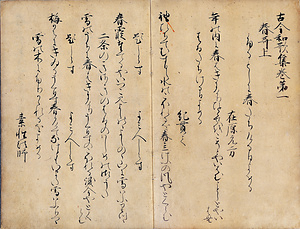 古今和歌集巻第一
春哥上
ふるとしに春たちける日よめる
在原元方
年の内に春はきにけりひとゝせをこそとやいはむことしとや
いはむ
はるたちける日よめる
紀貫之
袖ひちてむすひし水のこほれるを春立けふの風やとくらむ
題しらす　よみ人しらす
春霞たてるやいつこみよしのゝよしのゝ山に雪はふりつゝ
二条のきさきの春のはしめの御うた
雪の内に春はきにけり鶯のこほれる涙今やとくらむ
題しらす　よみ人しらす
梅かえにきゐる鶯春かけてなけともいまた雪はふりつゝ
雪の木にふりかゝれるをよめる
素性法師